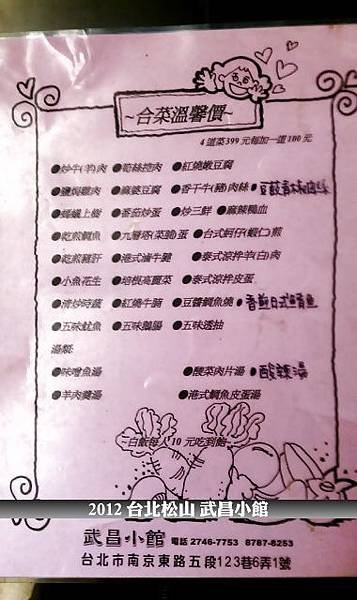 ~合菜溫馨價~
4道菜399元每加一道100元
●炒牛(羊)肉 ●筍絲控肉 ●紅燒嫩豆腐
●鹽焗雞肉 ●麻婆豆腐 ●香干牛(豬)肉絲 ●豆鼓青木瓜肉絲
●螞蟻上樹 ●香菇炒蛋 ●炒三鮮 ●麻辣鴨血
●乾煎鯛魚 ●九層塔(菜脯)蛋 ●台式蚵仔(蝦仁)煎
●乾煎豬肝 ●港式滷牛腱 ●泰式涼拌羊(白)肉
●小魚花生 ●培根高麗菜 ●泰式涼拌皮蛋
●清炒時蔬 ●紅燒牛腩 ●豆醬鯛魚燒 ●香煎日式鯖魚
●五味魷魚 ●五味鵝腸 ●五味透抽
湯類:
●味噌魚湯 ●酸菜肉片湯 ●酸辣湯
●羊肉羹湯 ●港式鯛魚皮蛋湯
白飯每人10元吃到飽
2012 台北松山 武昌小館
武昌小館 電話 2746-7753 8787-8253
台北市南京東路五段123巷6弄1號